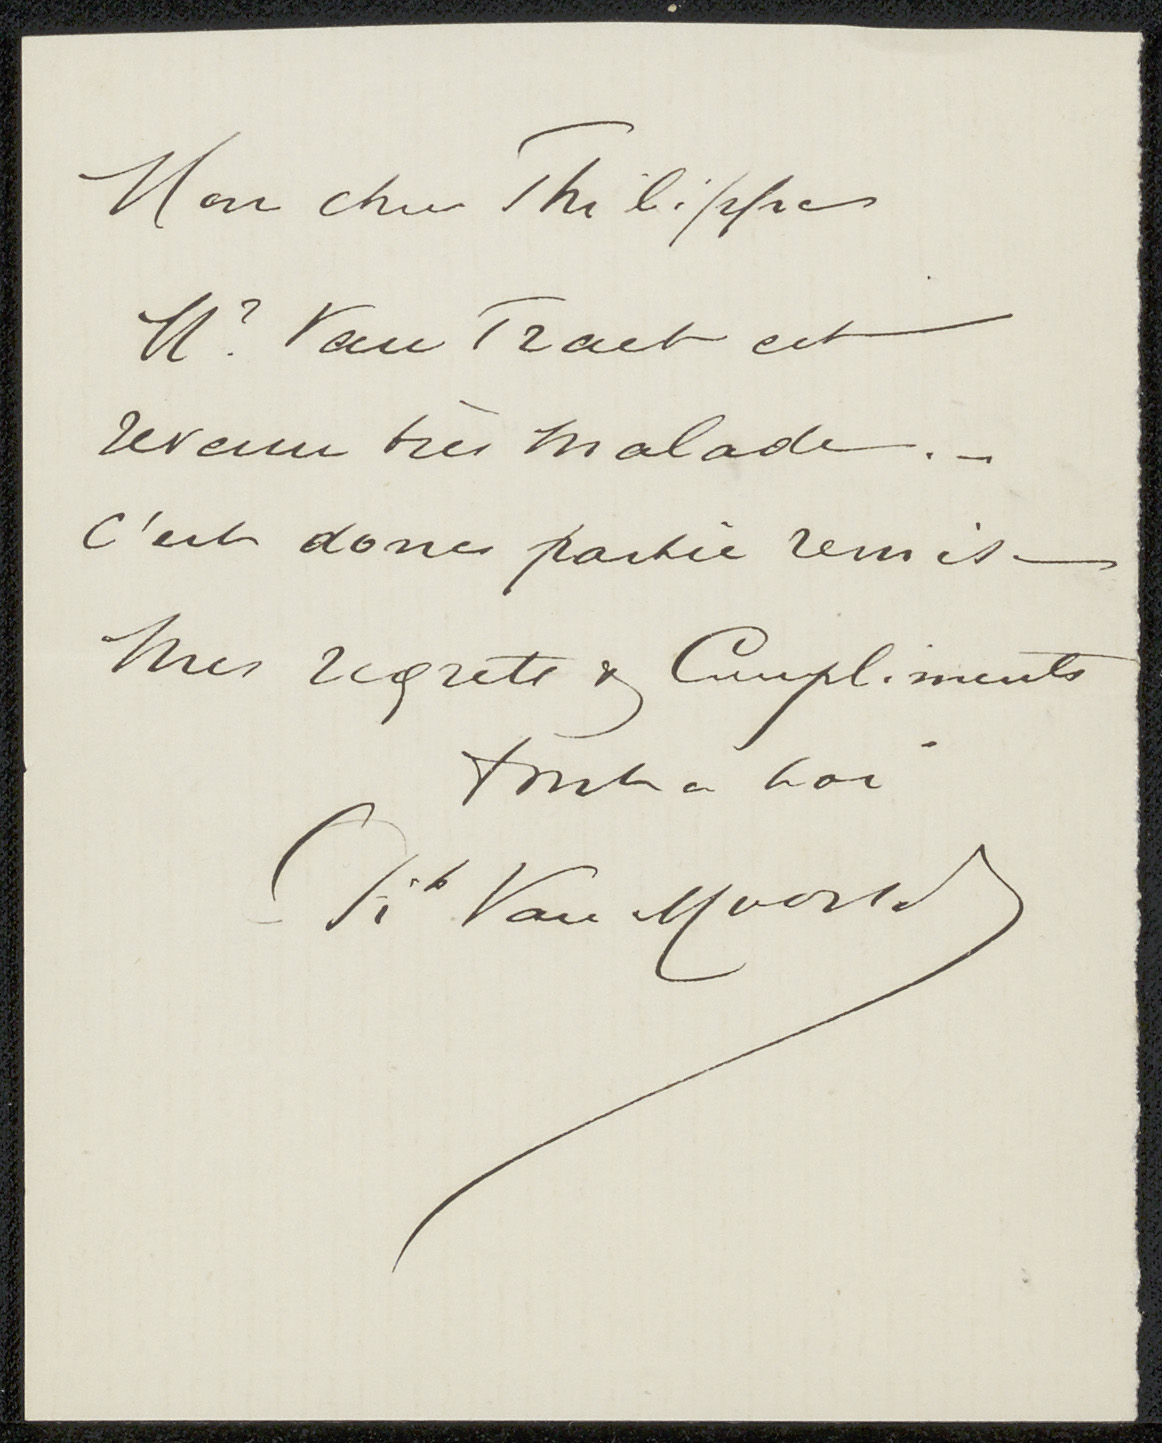 Mon cher Philippe
Mr. Van Praet est
revenu très malade. _
C'est donc partie remise
Mes regrets & Compliments
tout a toi
Van